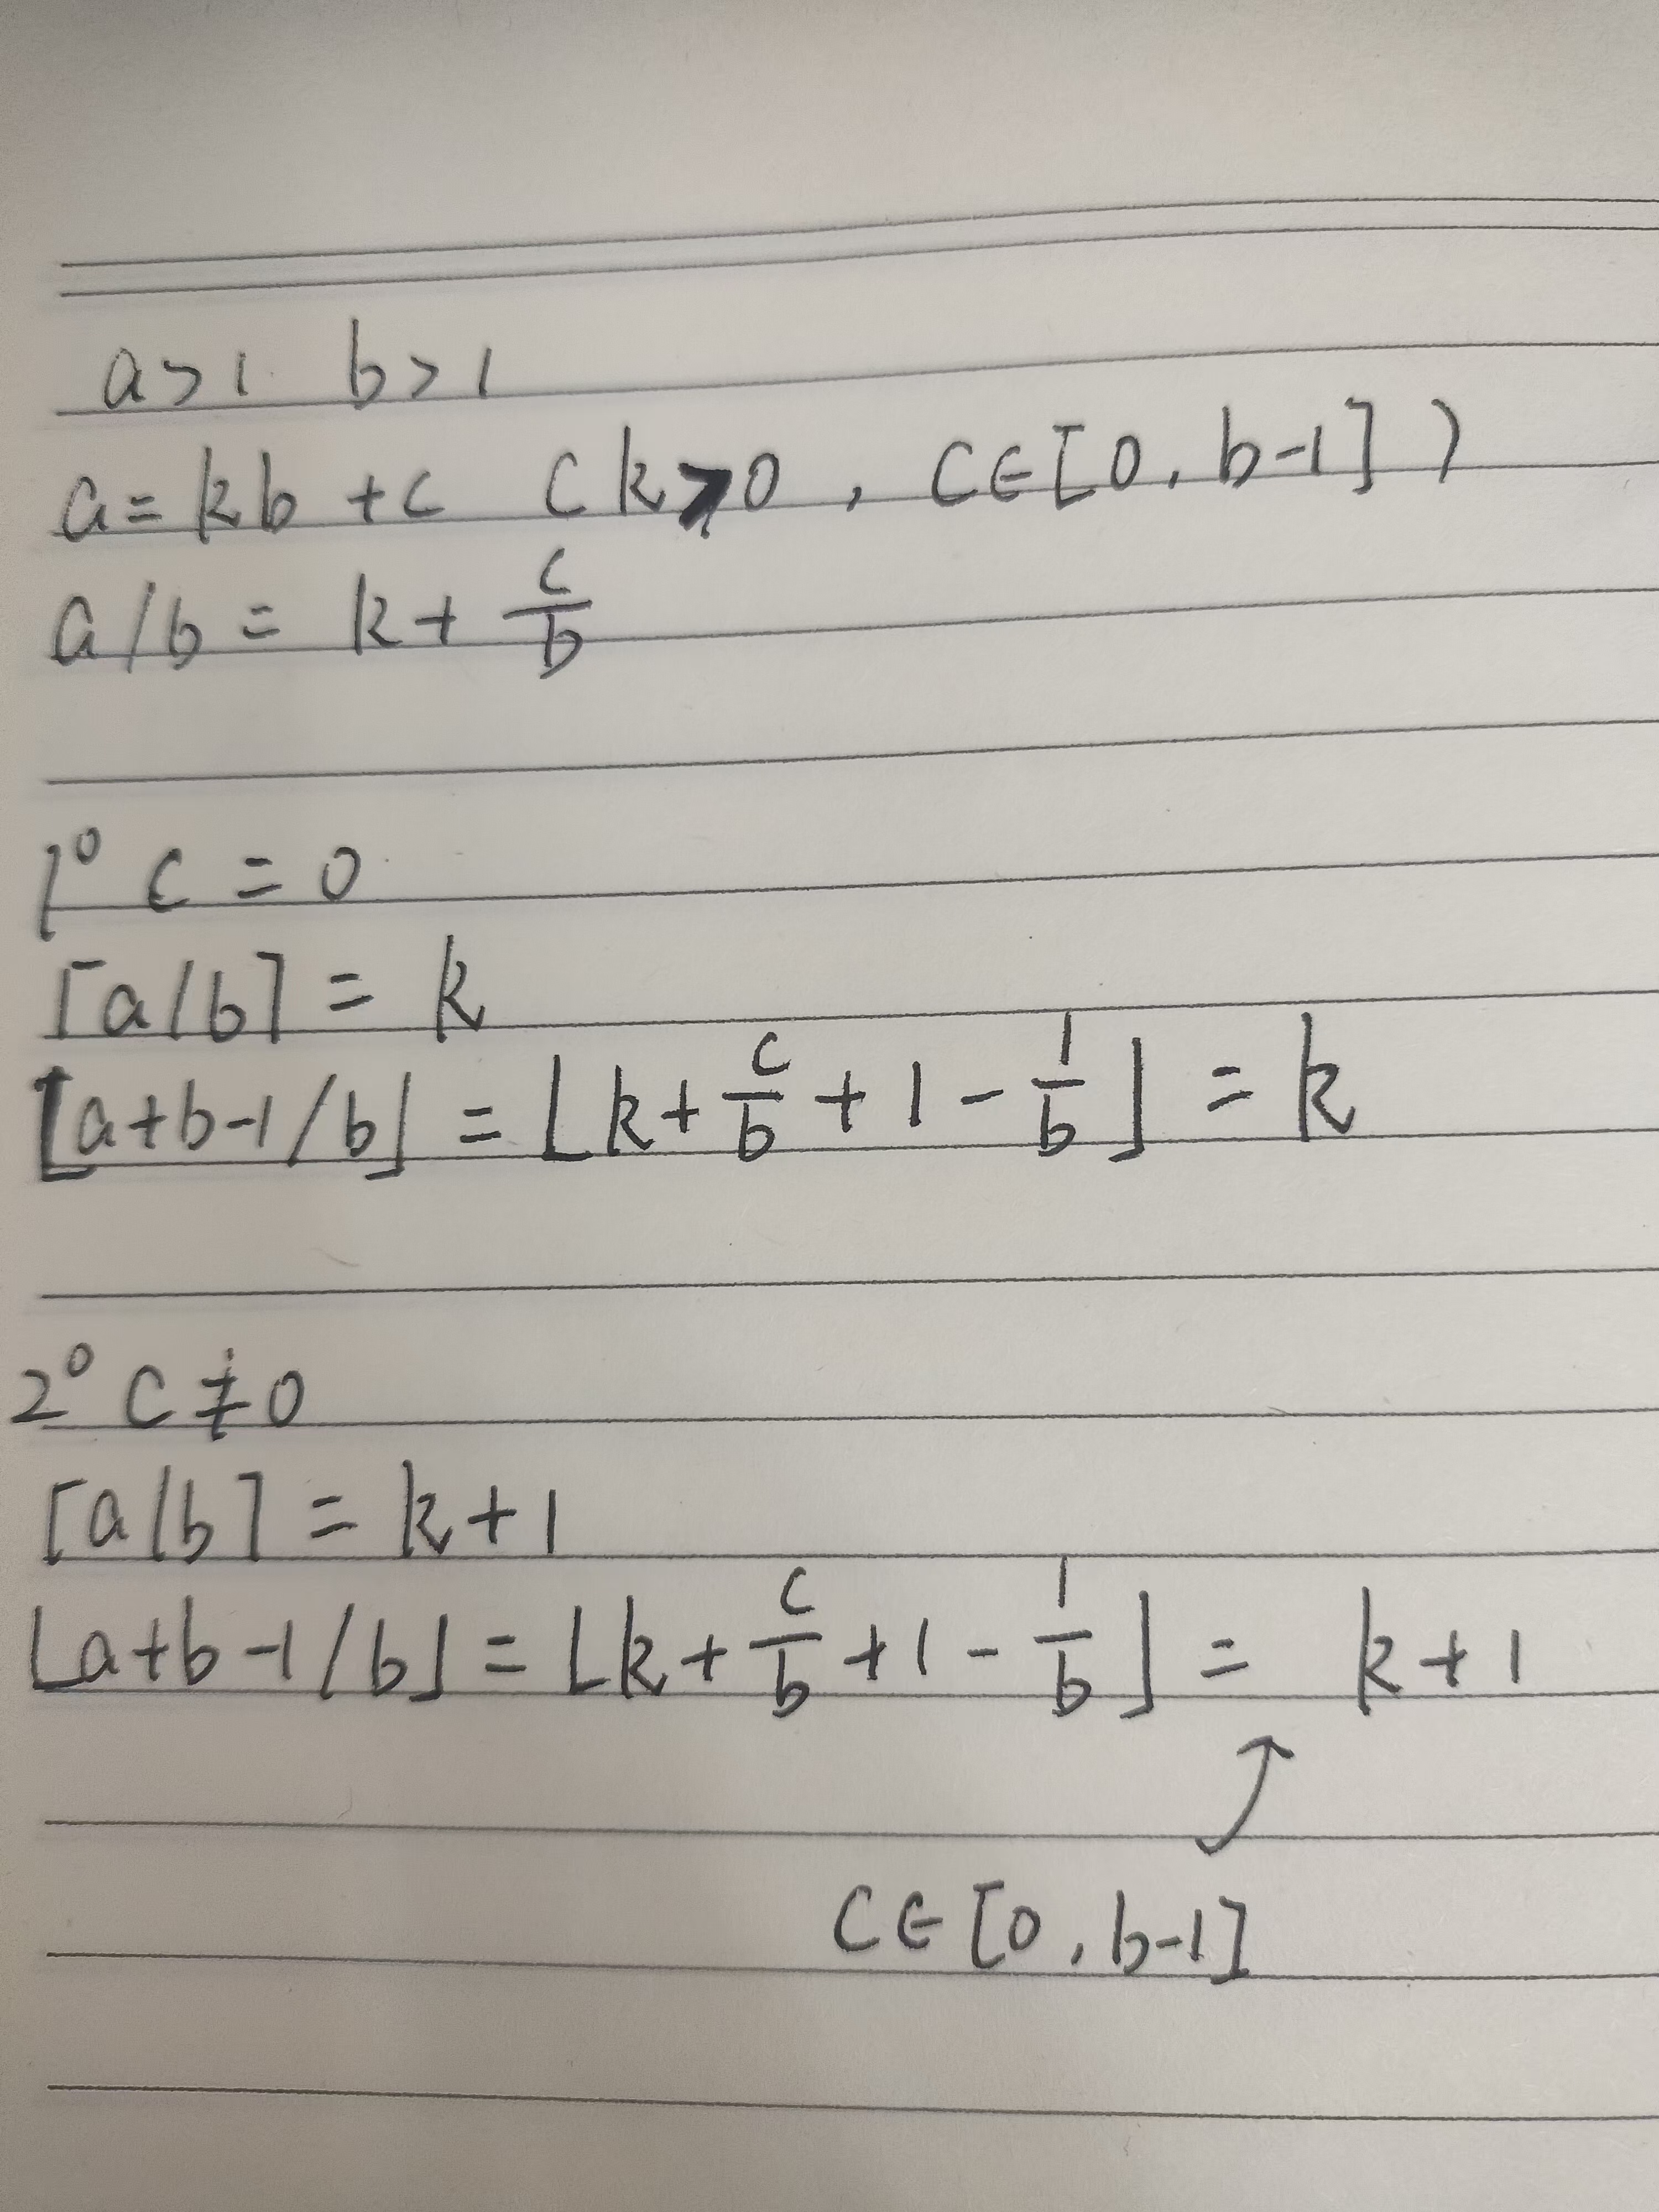 a>1 b>1
a=kb+c (k⩾0, c∈[0, b-1])
a/b = k+ c/b
1° c=0
⌈a/b⌉ = k
⌊a+b-1/b⌋ = ⌊k+ c/b +1- 1/b⌋ = k
2° c≠0
⌈a/b⌉ = k+1
⌊a+b-1/b⌋ = ⌊k+ c/b +1- 1/b⌋ = k+1
c∈[0, b-1]